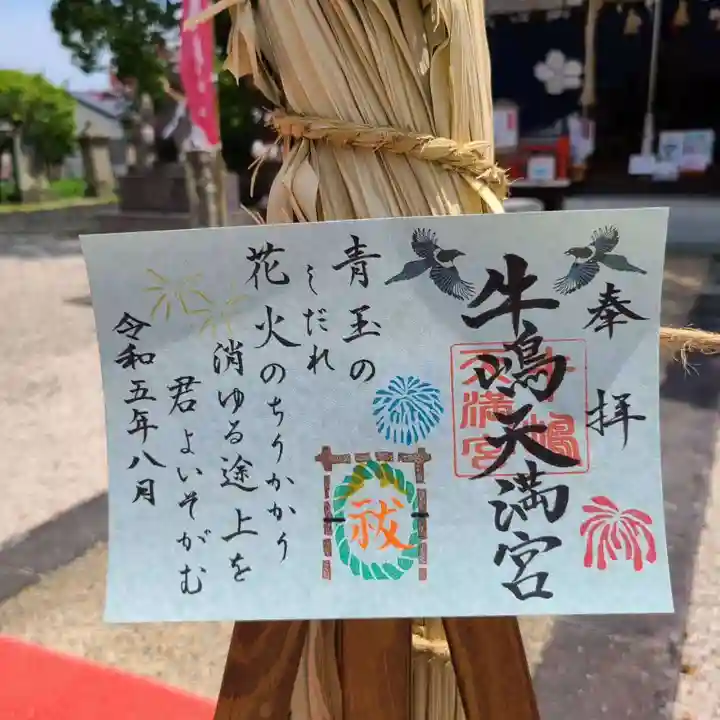 奉拝
牛嶋天満宮
牛嶋
天満宮
祓
青玉の
しだれ
花火のちりかかり
消ゆる途上を
君よいそがむ
令和五年八月